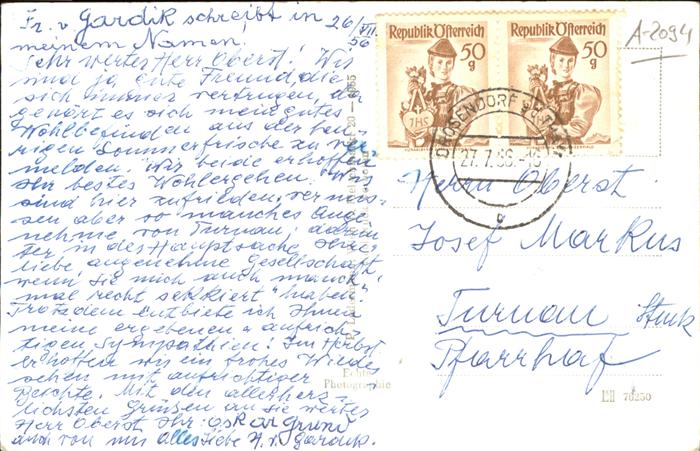 Fr. v. Gardik schreibt in 26/VII.
meinem Namen! 56
Sehr werter Herr Oberst! Wir
sind ja gute Freund, die
sich immer vertrugen, da
gehört es sich mein gutes
Wohlbefinden aus der heu-
rigen Sommerfrische zu ver-
melden. Wir beide erhoffen
Ihr bestes Wohlergehen. Wir
sind hier zufrieden, vermis-
sen aber so manches Ange-
nehme von Turnau, darun-
ter in des Hauptsache Ihre
liebe, angenehme Gesellschaft,
wenn sie mich auch manch-
mal recht sekkiert haben.
Trotzdem entbiete ich Ihnen
meine ergebenen u. aufrich-
tigen Sympathien! Im Herbst
erhoffen wir ein frohes Wieder-
sehen mit aufrichtiger
Beichte. Mit den allerherz-
lichsten Grüssen an sie werter
Herr Oberst Ihr: Oskar Grund
auch von mir alles Liebe H. v. Gardik.
Republik Österreich
50
g
Republik Österreich
50
g
A-2094
DROSENDORF
27. 7. 56
Herrn Oberst
Josef Markus
Turnau Stmk
Pfarrhof
Echte
Photographie
76250